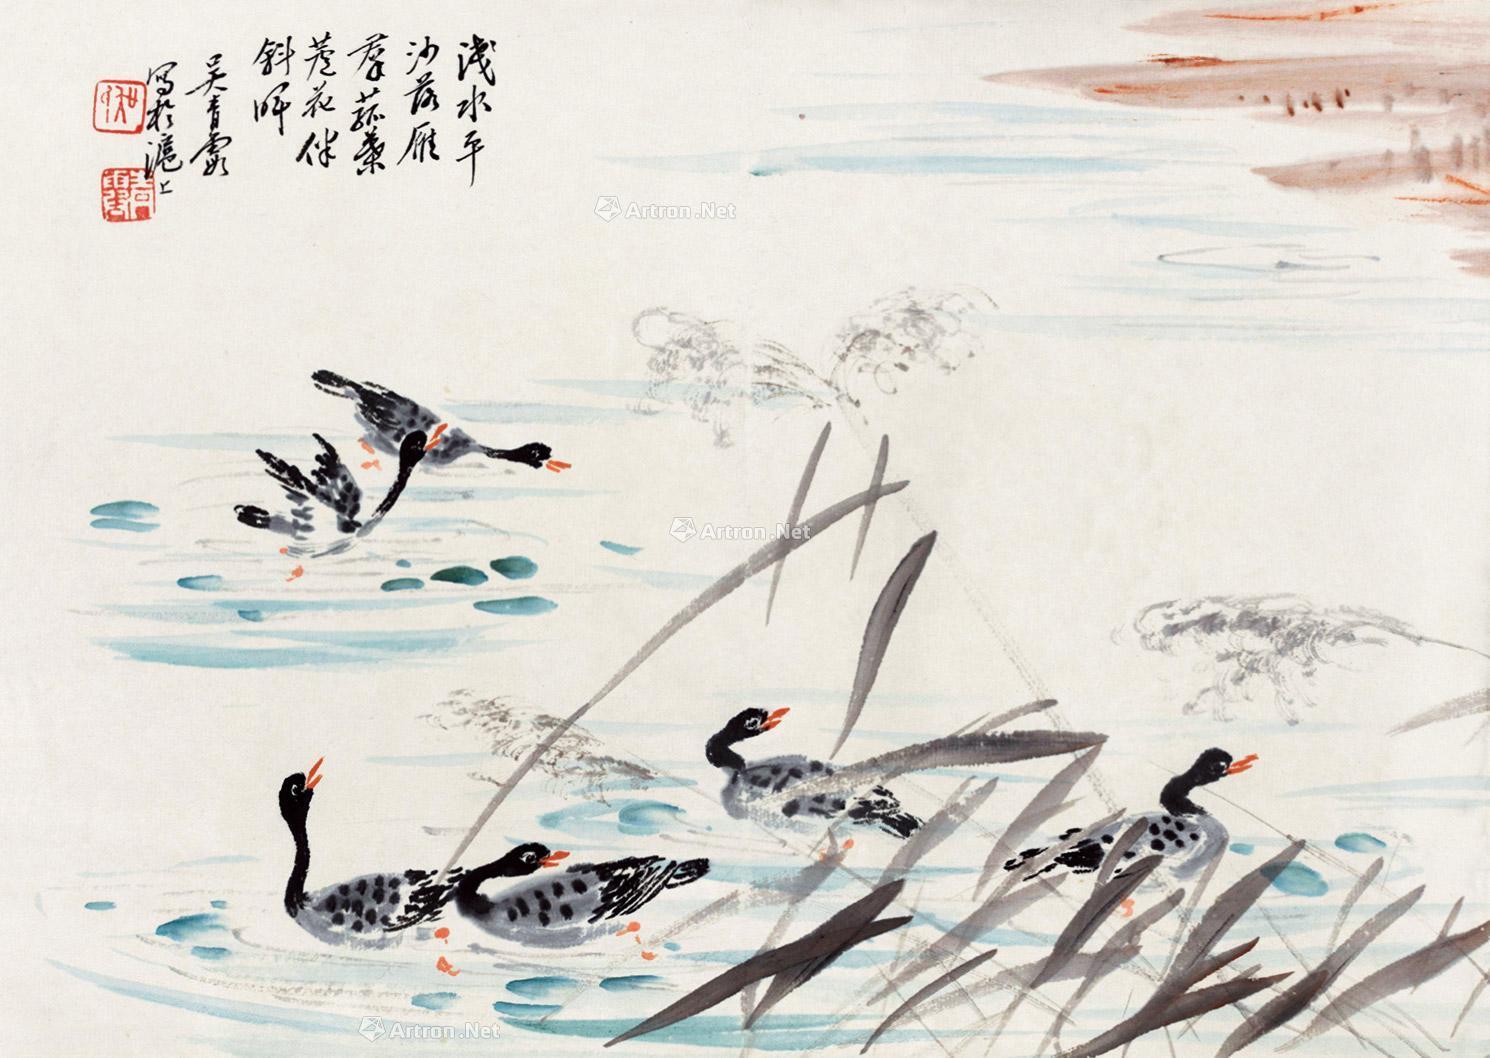 浅水平
沙落雁
群菰叶
芦花伴
斜晖
吴青霞
写於沪上
Artron.Net
Artron.Net
Artron.Net